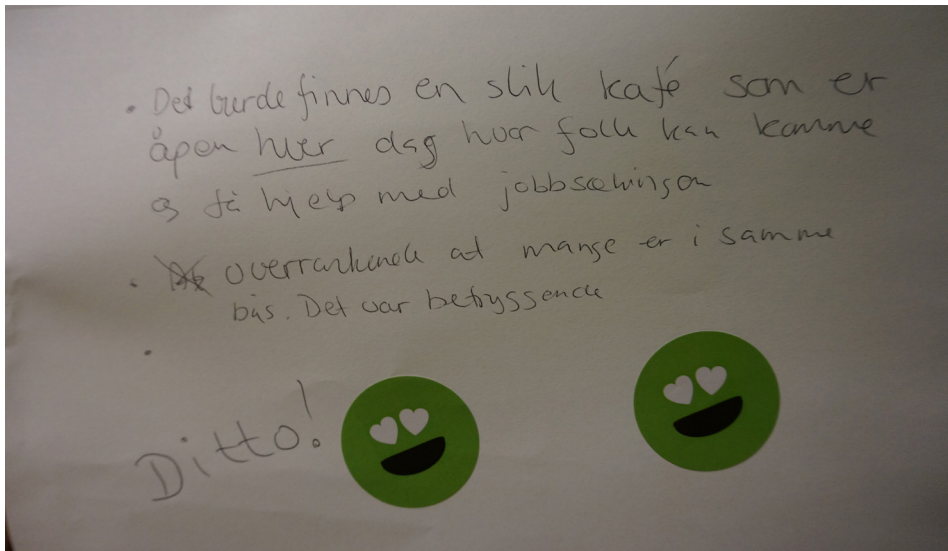 • Det burde finnes en slik kafé som er
åpen hver dag hvor folk kan komme
og få hjelp med jobbsøkingen
• overraskende at mange er i samme
bås. Det var betryggende
•
Ditto!